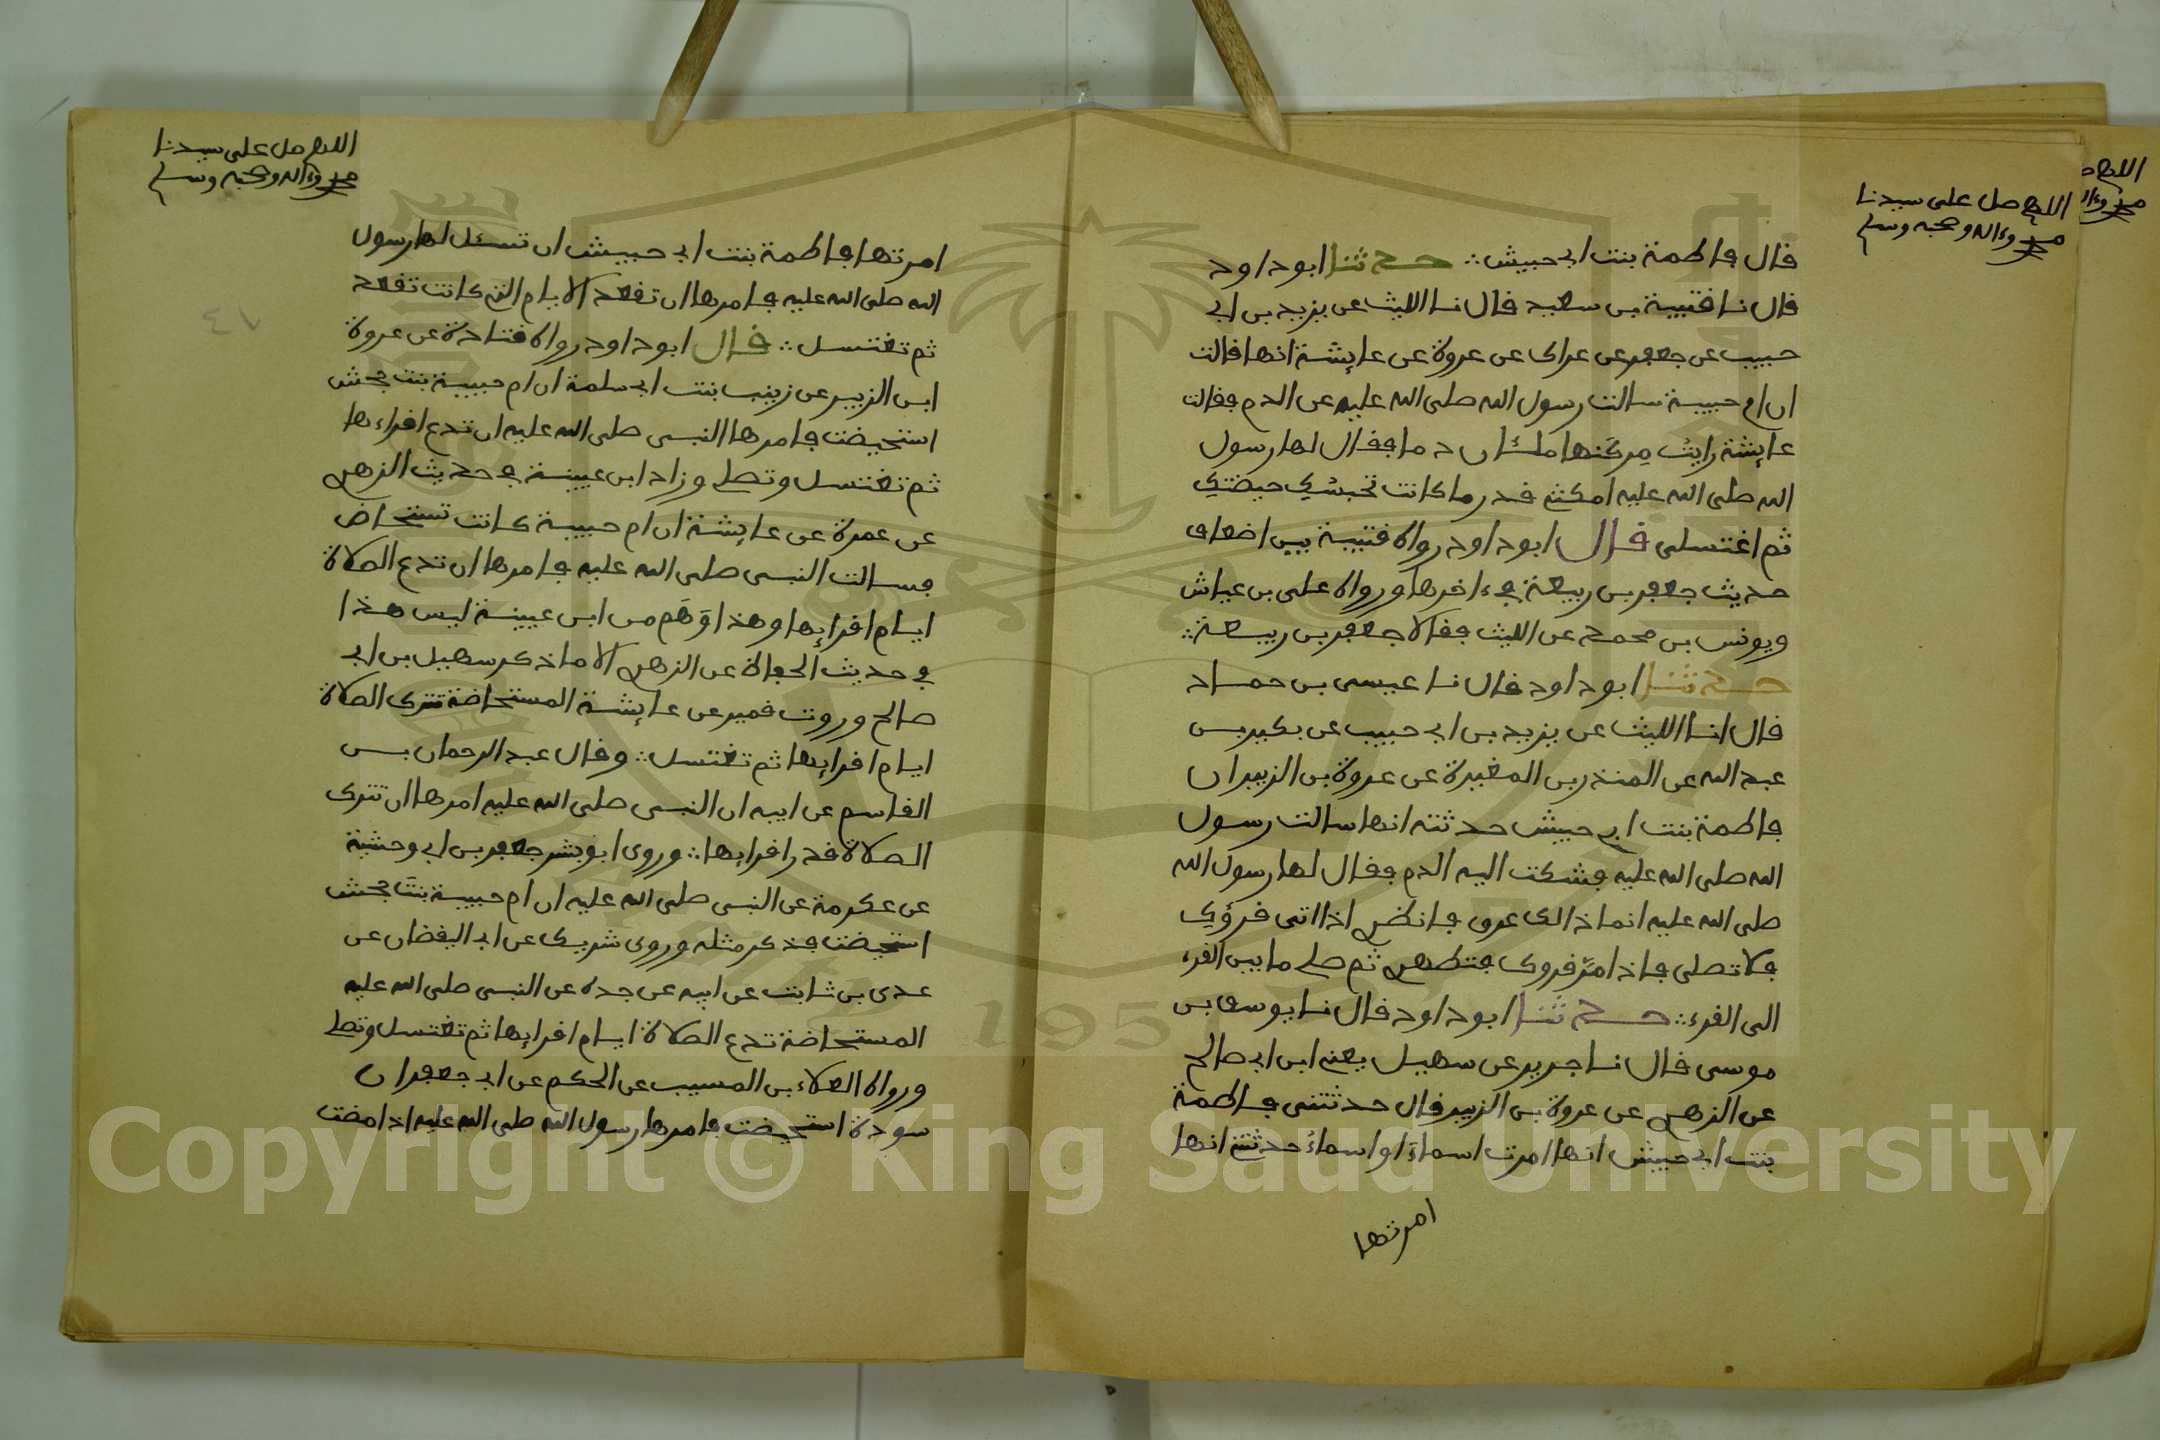 اللهم صل على سيدنا
محمد وءاله وصحبه وسلم
قال فاطمة بنت ابي حبيش ∴ حدثنا ابو داود
قال نا قتيبة بن سعيد قال نا الليث عن يزيد بن ابي
حبيب عن جعفر عن عراك عن عروة عن عايشة انها قالت
ان ام حبيبة سالت رسول الله صلى الله عليه عن الدم فقالت
عايشة رايت مِركَنها ملئان دما فقال لها رسول
الله صلى الله عليه امكثي قدر ما كانت تحبسُكِ حيضتكِ
ثم اغتسلي قال ابو داود رواه قتيبة بين اضعاف
حديث جعفر بن ربيعة في ءاخرها ورواه علي بن عياش
ويونس بن محمد عن الليث فقالا جعفر بن ربيعة ∴
حدثنا ابو داود قال نا عيسى بن حماد
قال انا الليث عن يزيد بن ابي حبيب عن بكير بن
عبد الله عن المنذر بن المغيرة عن عروة بن الزبير ان
فاطمة بنت ابي حبيش حدثته انها سالت رسول
الله صلى الله عليه فشكت اليه الدم فقال لها رسول الله
صلى الله عليه انما ذالك عرق فانظري اذا اتى قرؤكِ
فلا تصلي فاذا مرّ قروك فتطهري ثم صلي ما بين القرء
الى القرء ∴ حدثنا ابو داود قال نا يوسف بن
موسى قال نا جرير عن سهيل يعني ابن ابي صالح
عن الزهري عن عروة بن الزبير قال حدثتني فاطمة
بنت ابي حبيش انها امرت اسماءَ او اسماءُ حدثتني انها
امرتها
اللهم صل على سيدنا
محمد وءاله وصحبه وسلم
٤٧
امرتها فاطمة بنت ابي حبيش ان تسئل لها رسول
الله صلى الله عليه فامرها ان تقعد الايام التي كانت تقعد
ثم تغتسل ∴ قال ابو داود رواه قتادة عن عروة
ابن الزبير عن زينب بنت ابي سلمة ان ام حبيبة بنت جحش
استحيضت فامرها النبي صلى الله عليه ان تدع اقراءها
ثم تغتسل وتصلي وزاد ابن عيينة في حديث الزهري
عن عمرة عن عايشة ان ام حبيبة كانت تستحاض
فسالت النبي صلى الله عليه فامرها ان تدع الصلاة
ايام اقرايها وهذا وَهَم من ابن عيينة ليس هذا
في حديث الحفاظ عن الزهري الا ما ذكر سهيل بن ابي
صالح وروت قمير عن عايشة المستحاضة تترك الصلاة
ايام اقرايها ثم تغتسل ∴ وقال عبد الرحمان بن
القاسم عن ابيه ان النبي صلى الله عليه امرها ان تترك
الصلاة قدر اقرايها ∴ وروى ابو بشر جعفر بن ابي وحشية
عن عكرمة عن النبي صلى الله عليه ان ام حبيبة بنت جحش
استحيضت فذكر مثله وروى شريك عن ابي اليقضان عن
عدي بن ثابت عن ابيه عن جده عن النبي صلى الله عليه
المستحاضة تدع الصلاة ايام اقرايها ثم تغتسل وتصلي
ورواه العلاء بن المسيب عن الحكم عن ابي جعفر ان
سودة استحيضت فامرها رسول الله صلى الله عليه اذا مضت
Copyright © King Saud University